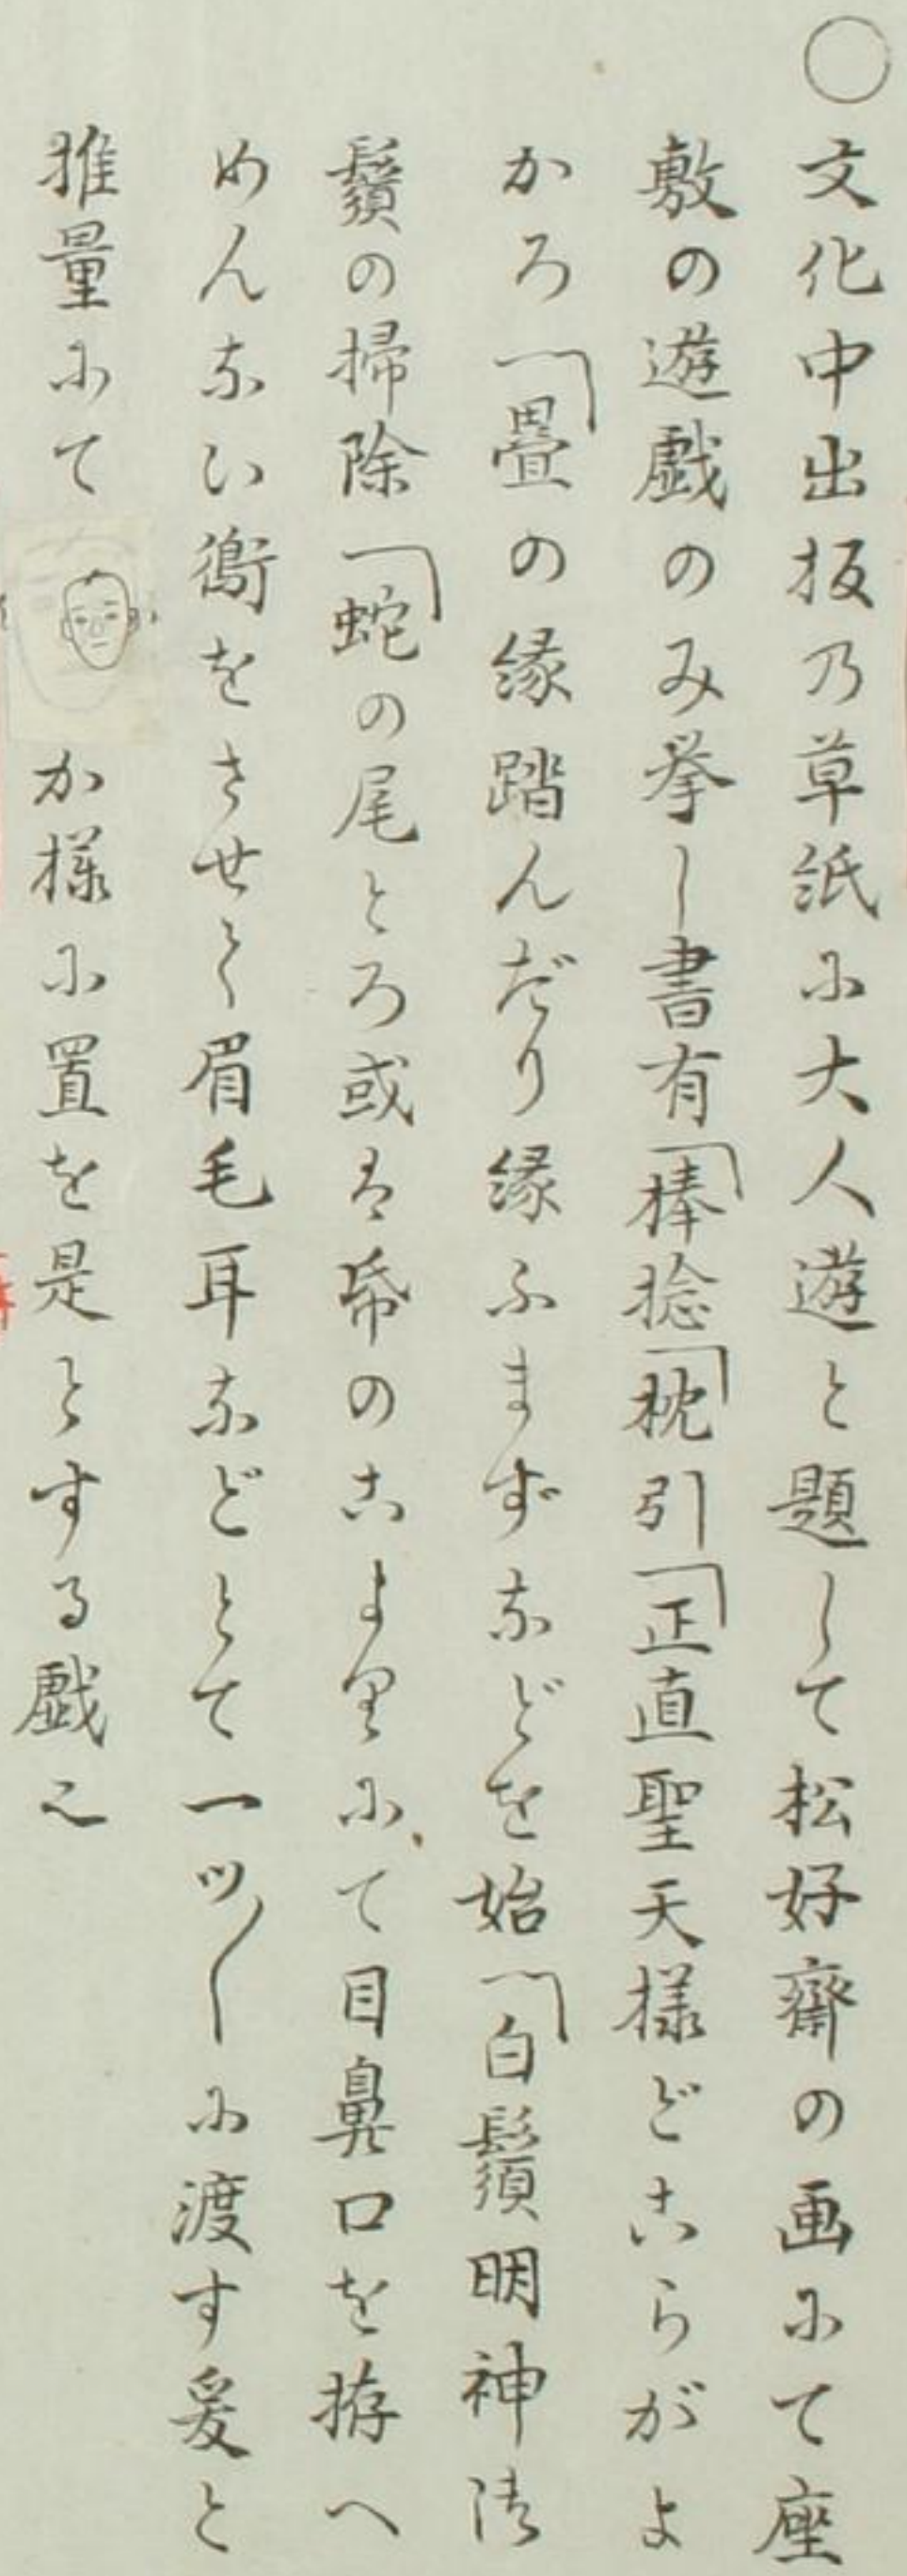 ○文化中出板乃草紙に大人遊と題して松好齋の画にて座
敷の遊戯のみ挙し書有「棒捻「枕引「正直聖天様どこらがよ
かろ「畳の縁踏んだり縁ふまずなどを始「白鬚明神御
鬚の掃除「蛇の尾とろ或は帋のこよりにて目鼻口を拵へ
めんない鵆をさせて眉毛耳などとて一ツ〳〵に渡す爰と
推量にてか様に置を是とする戯之